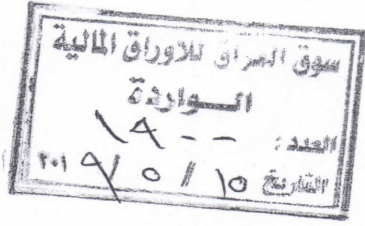 سوق العراق للاوراق المالية
الـــواردة
العدد : ١٩٠٠
التاريخ ١٥ / ٥ / ٢٠١٩